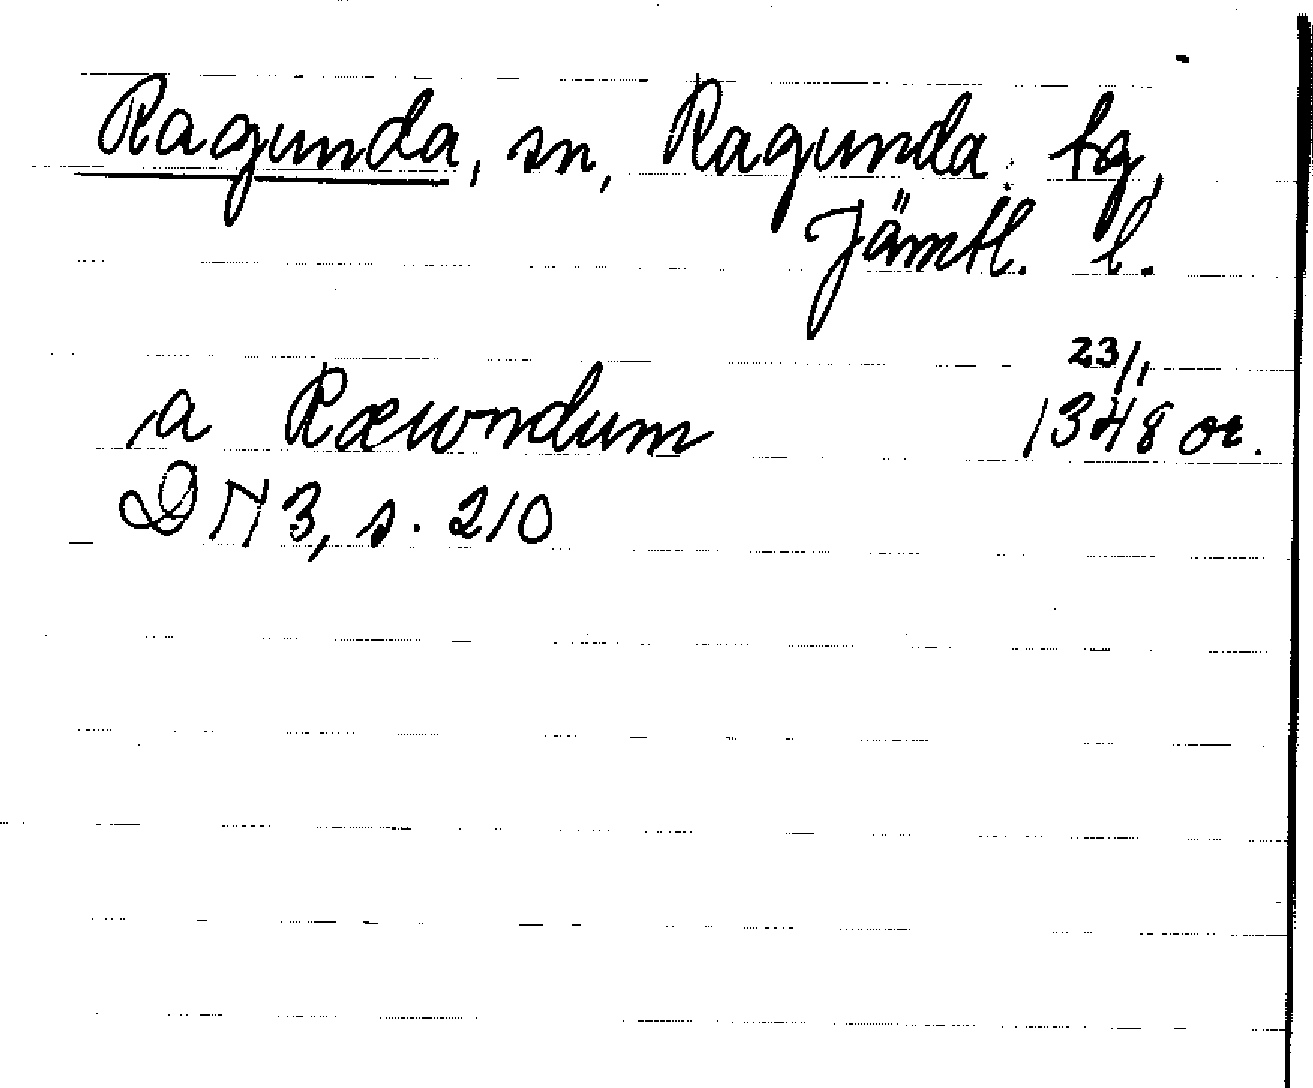 Ragunda, sn, Ragunda tg,
Jämtl. l.
23/1
a Ræwndum 1348 or.
DN 3, s. 210